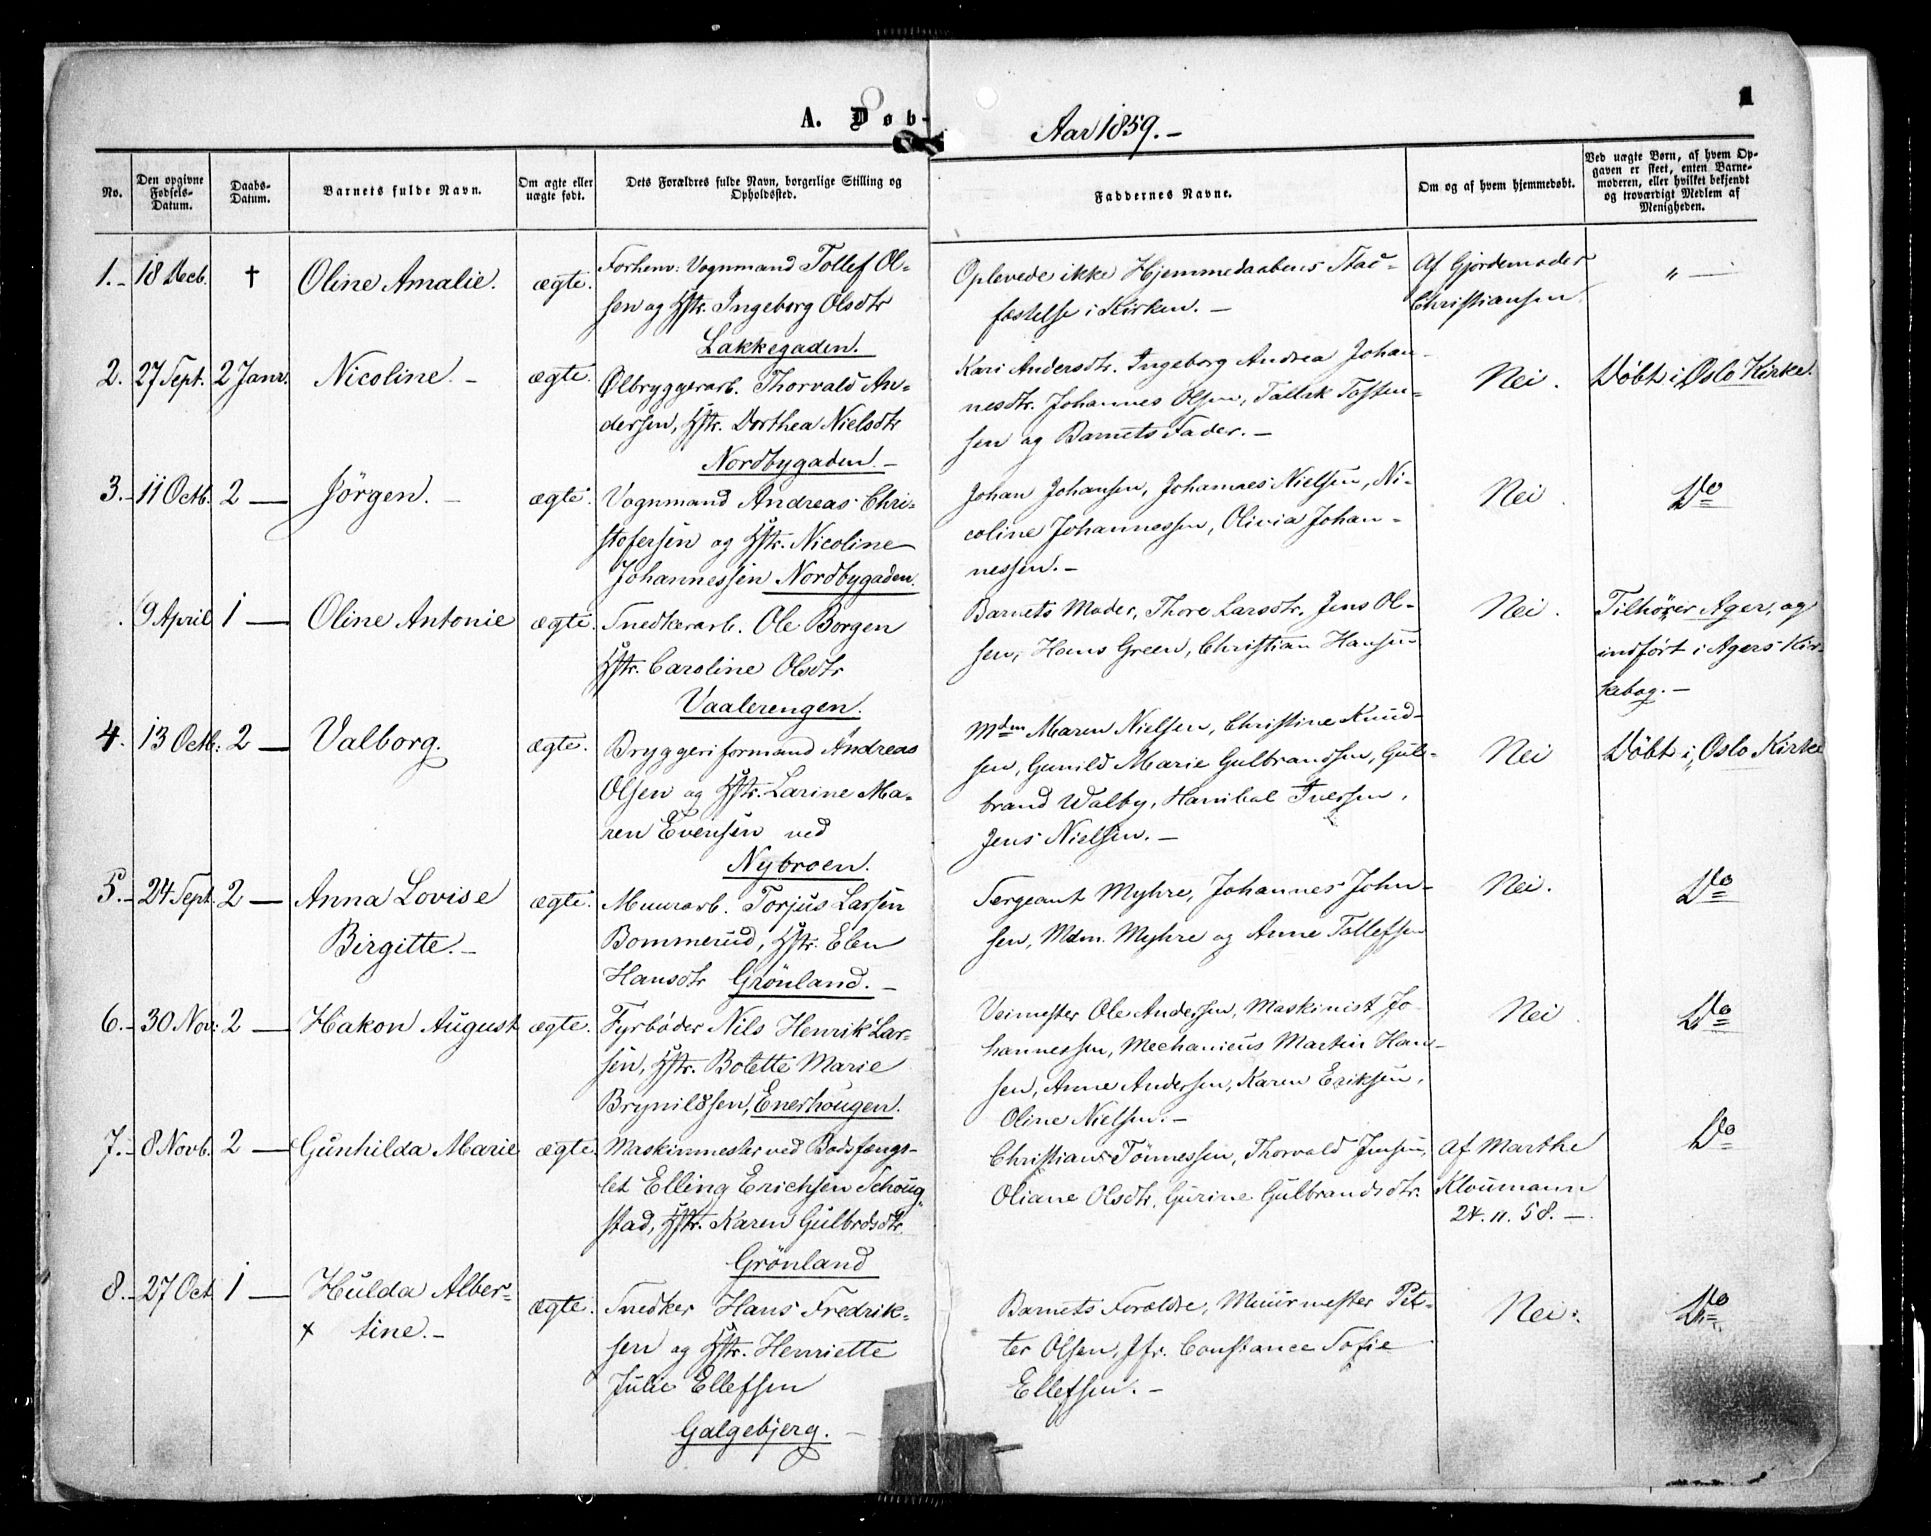 A. Døb-
Aar 1859.-
1
No.
Den opgivne Fødsels-Datum.
Daabs-Datum.
Barnets fulde Navn.
Om ægte eller uægte født.
Dets Forældres fulde Navn, borgerlige Stilling og Opholdssted.
Faddernes Navne.
Om og af hvem hjemmedøbt.
Ved uægte Børn, af hvem Opgaven er skeet, enten Barnemoderen, eller hvilket bekjendt og troværdigt Medlem af Menigheden.
1.- 18 Decb. † Oline Amalie. ægte.
Forhenv: Vognmand Tollef Ol-
sen og Hstr. Ingeborg Olsdtr
Lakkegaden.
Oplevede ikke Hjemmedaabens Stad-
fæstelse i Kirken.-
Af Gjordemoder
Christiansen
" —
2. 27 Sept. 2 Janr. Nicoline.- ægte.
Ølbryggerarb. Thorvald An-
dersen, Hstr. Dorthea Nielsdtr
Nordbygaden.-
Kari Andersdtr. Ingeborg Andrea Johan-
nesdtr. Johannes Olsen, Tallak Tossen-
sen og Barnets Fader.-
Nei.
Döbt i Oslo Kirke.
3.- 11 Octb. 2 — Jörgen.- ægte.
Vognmand Andreas Chri-
stofersen og Hstr. Nicoline
Johannessen Nordbygaden.
Johan Johansen, Johannes Nielsen, Ni-
coline Johannessen, Olivia Johan-
nessen.-
Nei.
Do
9 April 1 — Oline Antonie ægte.
Snedkerarb. Ole Borgen
Hstr. Caroline Olsdtr
Vaalerengen.
Barnets Moder, Thore Larsdtr, Jens Ol-
sen, Hans Green, Christian Hansen
Nei.
Tilhörer Ager, og
indfört i Agers Kir-
kebog.-
4. 13 Octb: 2 — Valborg. ægte.
Bryggeriformand Andreas
Olsen og Hstr. Larine Ma-
ren Evensen ved
Nybroen.
Mdm Maren Nielsen, Christine Knud-
sen, Gunild Marie Gulbrandsen, Gul-
brand Walby, Hanibal Iversen,
Jens Nielsen.-
Nei
Döbt i Oslo Kirke
5.- 24 Sept. 2 — Anna Lovise ægte.
Birgitte.-
Muurarb. Torjus Larsen
Bommerud, Hstr. Elen
Hansdtr Grönland.-
Sergeant Myhre, Johannes John-
sen, Mdm. Myhre og Anne Tollefsen
Nei.
Do
6.- 30 Nov: 2 — Hakon August ægte.
Fyrböder Nils Henrik Lar-
sen, Hstr. Bolette Marie
Brynildsen, Enerhougen.
Veimester Ole Andersen, Maskinist Jo-
hannessen, Mechanicus Martin Han-
sen, Anne Andersen, Karen Eriksen,
Oline Nielsen.-
Nei.
Do
7.- 8 Novb. 2 — Gunhilda Marie ægte.
Maskinmester ved Bodsfængs-
let Elling Erichsen Schoug-
stad, Hstr. Karen Gulbrdsdtr.
Grönland
Christian Tönnessen, Thorvald Jensen,
Oliane Olsdtr. Gurine Gulbrandsdtr.
Af Marthe
Kloumann
24. 11. 58.-
Do
8.- 27 Oct 1 — Hulda Alber-
x tine.- ægte.
Snedker Hans Fredrik-
sen og Hstr. Henriette
Julie Ellefsen
Galgebjerg.-
Barnets Forældre, Muurmester Pet-
ter Olsen, Jfr. Constance Sofie
Ellefsen.-
Nei.
Do